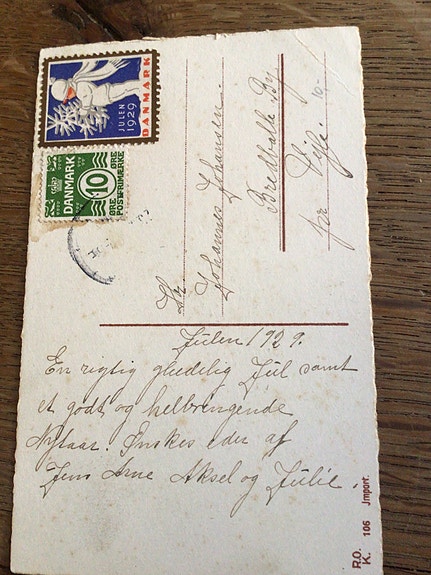 JULEN
1929
DANMARK
DANMARK
10
ØRE
ØRE
POSTFRIMÆRKE
Hr.
Johannes Johansen.
Bredballe By
pr Vejle.
10,-
Julen 1929.
En rigtig glædelig Jul samt
et godt og helbringende
Nytaar. Ønskes eder af
Jens Arne Aksel og Julie
R.O.
K. 106 Jmport.